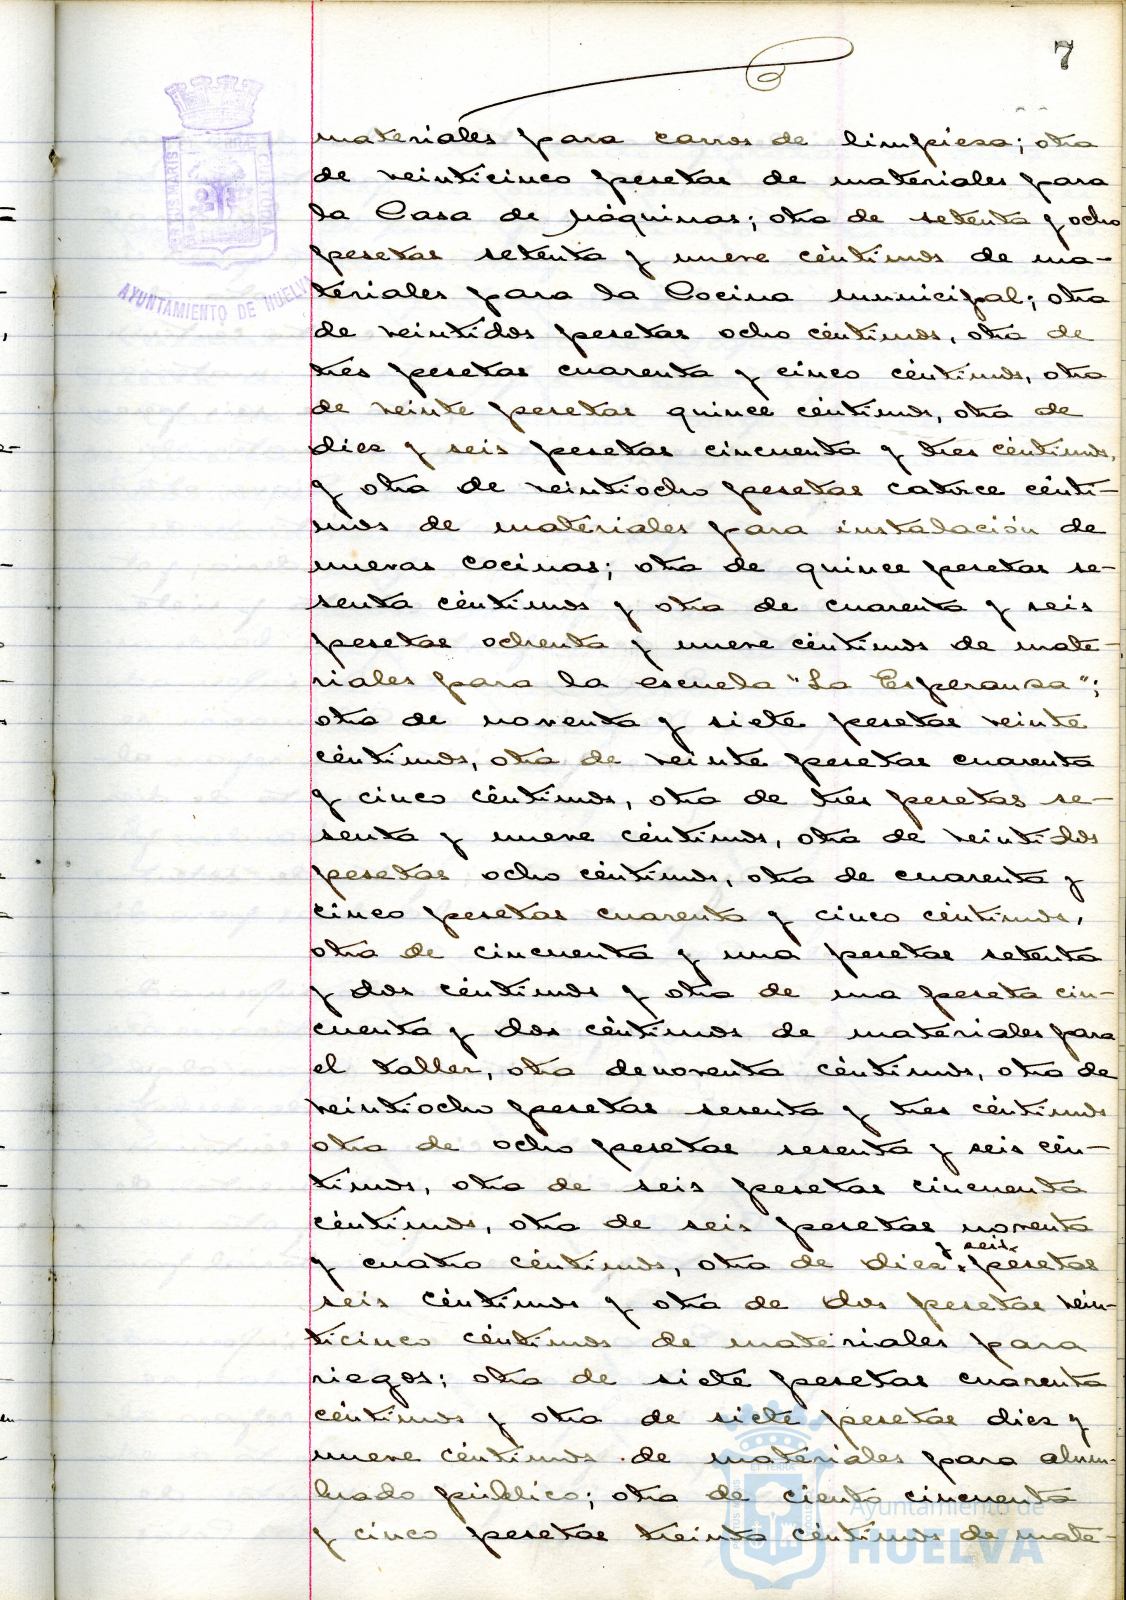 7
materiales para carros de limpiesa; otra
de veinticinco pesetas de materiales para
la Casa de Máquinas; otra de setenta y ocho
pesetas setenta y nueve céntimos de ma-
teriales para la Cocina municipal; otra
de veintidos pesetas ocho céntimos, otra de
tres pesetas cuarenta y cinco céntimos, otra
de veinte pesetas quince céntimos, otra de
diez y seis pesetas cincuenta y tres céntimos,
y otra de veintiocho pesetas catorce cénti-
mos de materiales para instalación de
nuevas cocinas; otra de quince pesetas se-
senta céntimos y otra de cuarenta y seis
pesetas ochenta y nueve céntimos de mate-
riales para la escuela "La Esperanza";
otra de noventa y siete pesetas veinte
céntimos, otra de veinte pesetas cuarenta
y cinco céntimos, otra de tres pesetas se-
senta y nueve céntimos, otra de veintidos
pesetas ocho céntimos, otra de cuarenta y
cinco pesetas cuarenta y cinco céntimos,
otra de cincuenta y una pesetas setenta
y dos céntimos y otra de una peseta cin-
cuenta y dos céntimos de materiales para
el taller, otra de noventa céntimos, otra de
veintiocho pesetas sesenta y tres céntimos
otra de ocho pesetas sesenta y seis cén-
timos, otra de seis pesetas cincuenta
céntimos, otra de seis pesetas noventa
y cuatro céntimos, otra de diez y seis pesetas
seis céntimos y otra de dos pesetas vein-
ticinco céntimos de materiales para
riegos; otra de siete pesetas cuarenta
céntimos y otra de siete pesetas diez y
nueve céntimos de materiales para alum-
brado público; otra de ciento cincuenta
y cinco pesetas treinta céntimos de mate-
AYUNTAMIENTO DE HUELVA
Ayuntamiento de
HUELVA